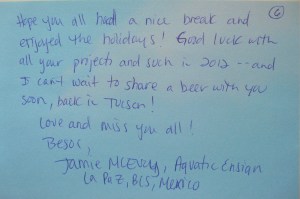 6
Hope you all had a nice break and
enjoyed the holidays! Good luck with
all your projects and such in 2012 -- and
I can't wait to share a beer with you
soon, back in Tucson!
Love and miss you all!
Besos,
Jamie McEvoy, Aquatic Ensign
La Paz, BCS, Mexico